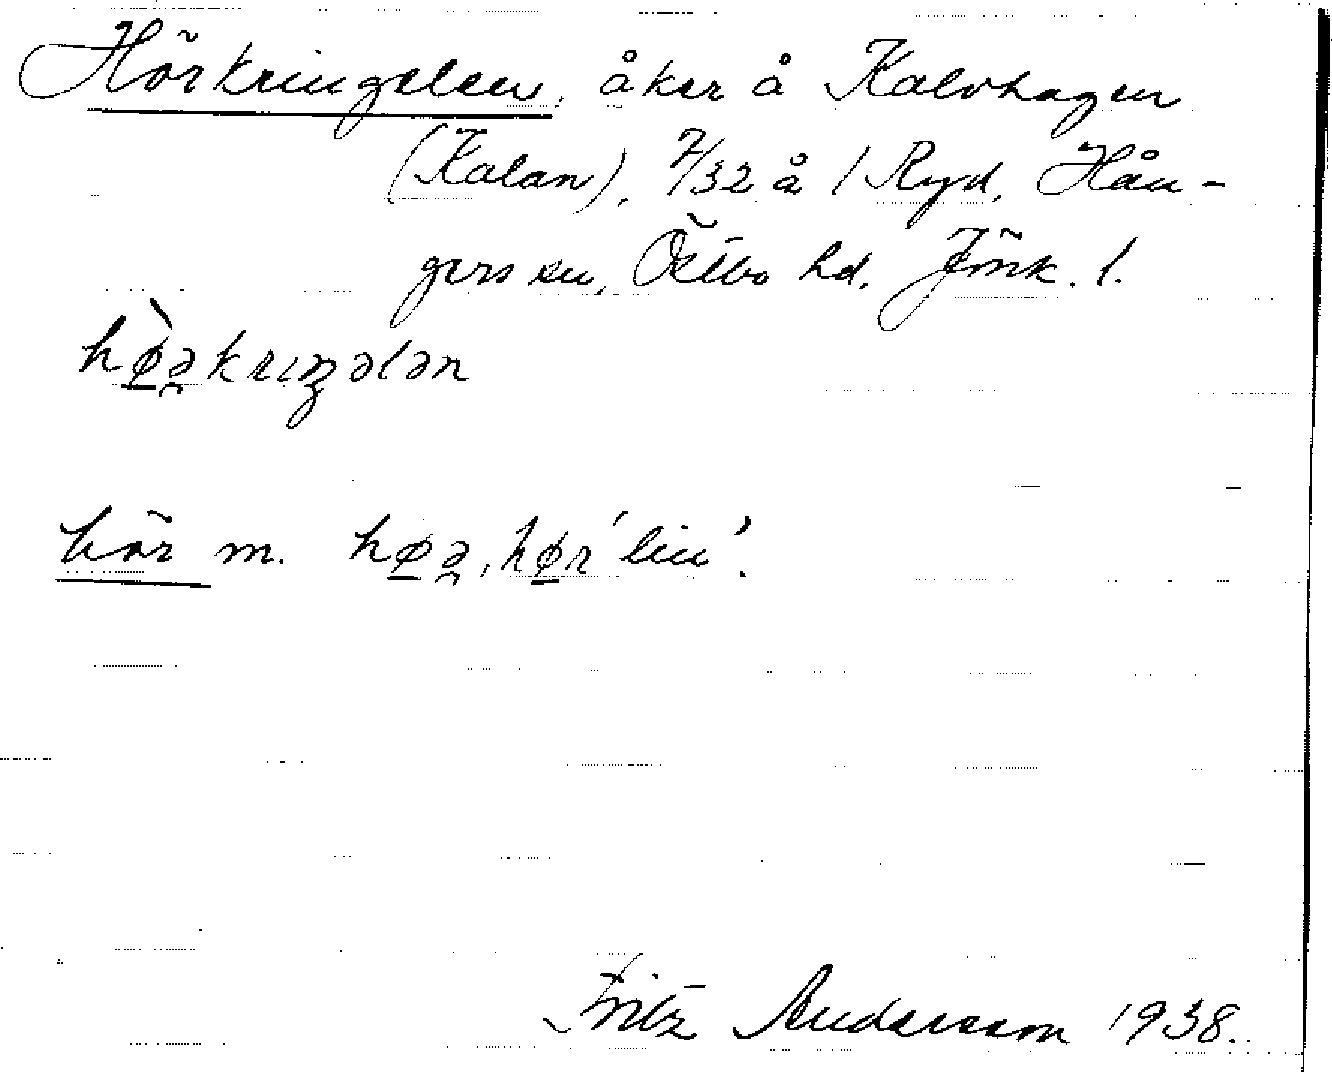 Hörkringelen, åker å Kalvhagen
(Kalan), 7/32 å 1 Ryd, Hån-
gers sn, Östbo hd. Jönk. l.
hø̀ə̯krıŋələn
hör m. høə̯, hør 'lin'.
Fritz Andersson 1938.